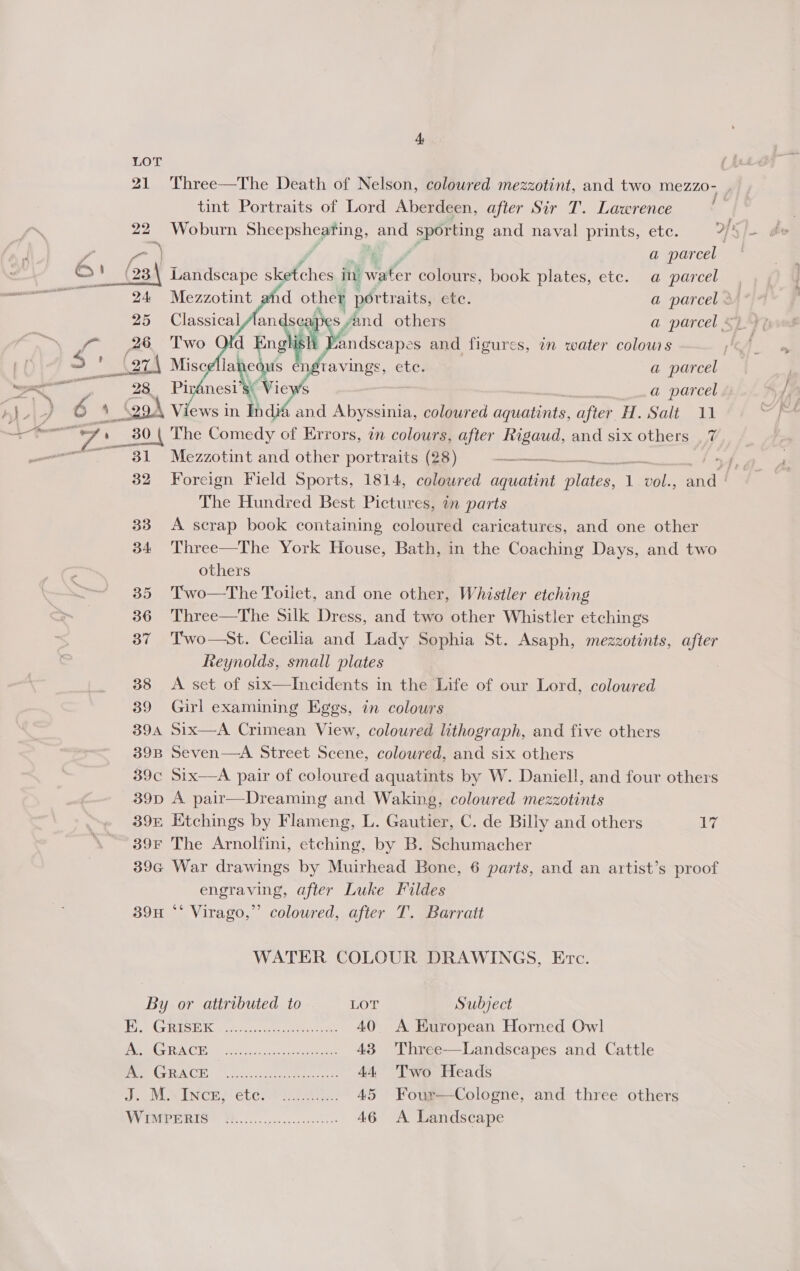 4
LOT
21 Three—The Death of Nelson, coloured mezzotint, and two mezzo-
tint Portraits of Lord Aberdeen, after Sir T. Lawrence
22 Woburn Sheepshearing, and sporting and naval prints, etc.
a parcel
23 Landscape sketches in water colours, book plates, etc. a parcel
24 Mezzotint and other portraits, etc. a parcel
25 Classical landscapes and others a parcel
26 Two Old English Landscapes and figures, in water colours
27 Miscellaneous engravings, etc. a parcel
28 Piranesi's Views a parcel
29A Views in India and Abyssinia, coloured aquatints, after H. Salt 11
30 The Comedy of Errors, in colours, after Rigaud, and six others 7
31 Mezzotint and other portraits (28)
32 Foreign Field Sports, 1814, coloured aquatint plates, 1 vol., and
The Hundred Best Pictures, in parts
33 A scrap book containing coloured caricatures, and one other
34 Three—The York House, Bath, in the Coaching Days, and two
others
35 Two—The Toilet, and one other, Whistler etching
36 Three—The Silk Dress, and two other Whistler etchings
37 Two—St. Cecilia and Lady Sophia St. Asaph, mezzotints, after
Reynolds, small plates
38 A set of six—Incidents in the Life of our Lord, coloured
39 Girl examining Eggs, in colours
39A Six—A Crimean View, coloured lithograph, and five others
39B Seven—A Street Scene, coloured, and six others
39C Six—A pair of coloured aquatints by W. Daniell, and four others
39D A pair—Dreaming and Waking, coloured mezzotints
39E Etchings by Flameng, L. Gautier, C. de Billy and others 17
39F The Arnolfini, etching, by B. Schumacher
39G War drawings by Muirhead Bone, 6 parts, and an artist's proof
engraving, after Luke Fildes
39H "Virago," coloured, after T. Barratt
WATER COLOUR DRAWINGS, ETC.
By or attributed to LOT Subject
E. GRISEK ........................ 40 A European Horned Owl
A. GRACE ........................ 43 Three—Landscapes and Cattle
A. GRACE ........................ 44 Two Heads
J. M. INCE, etc. ............ 45 Four—Cologne, and three others
WIMPERIS ........................ 46 A Landscape